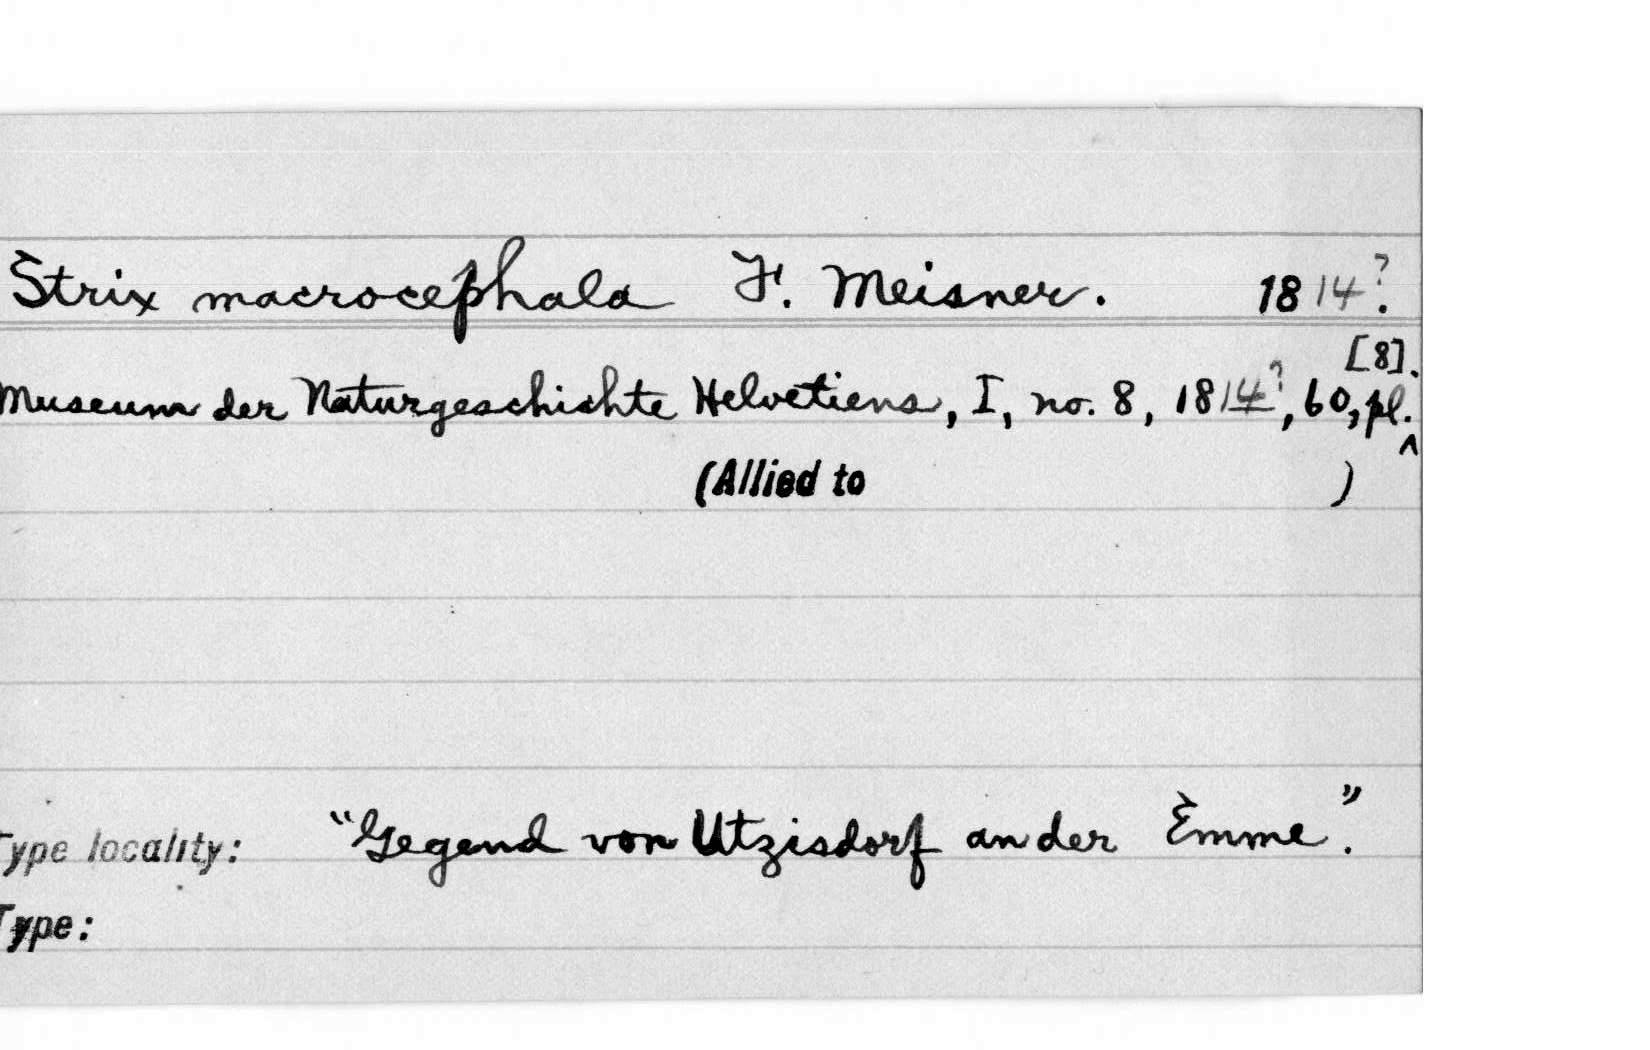 Strix macrocephala F. Meisner. 1814?.
Museum der Naturgeschichte Helvetiens, I, no. 8, 1814?, 60, pl. [8].
(Allied to )
Type locality: "Gegend von Utzisdorf an der Emme."
Type: